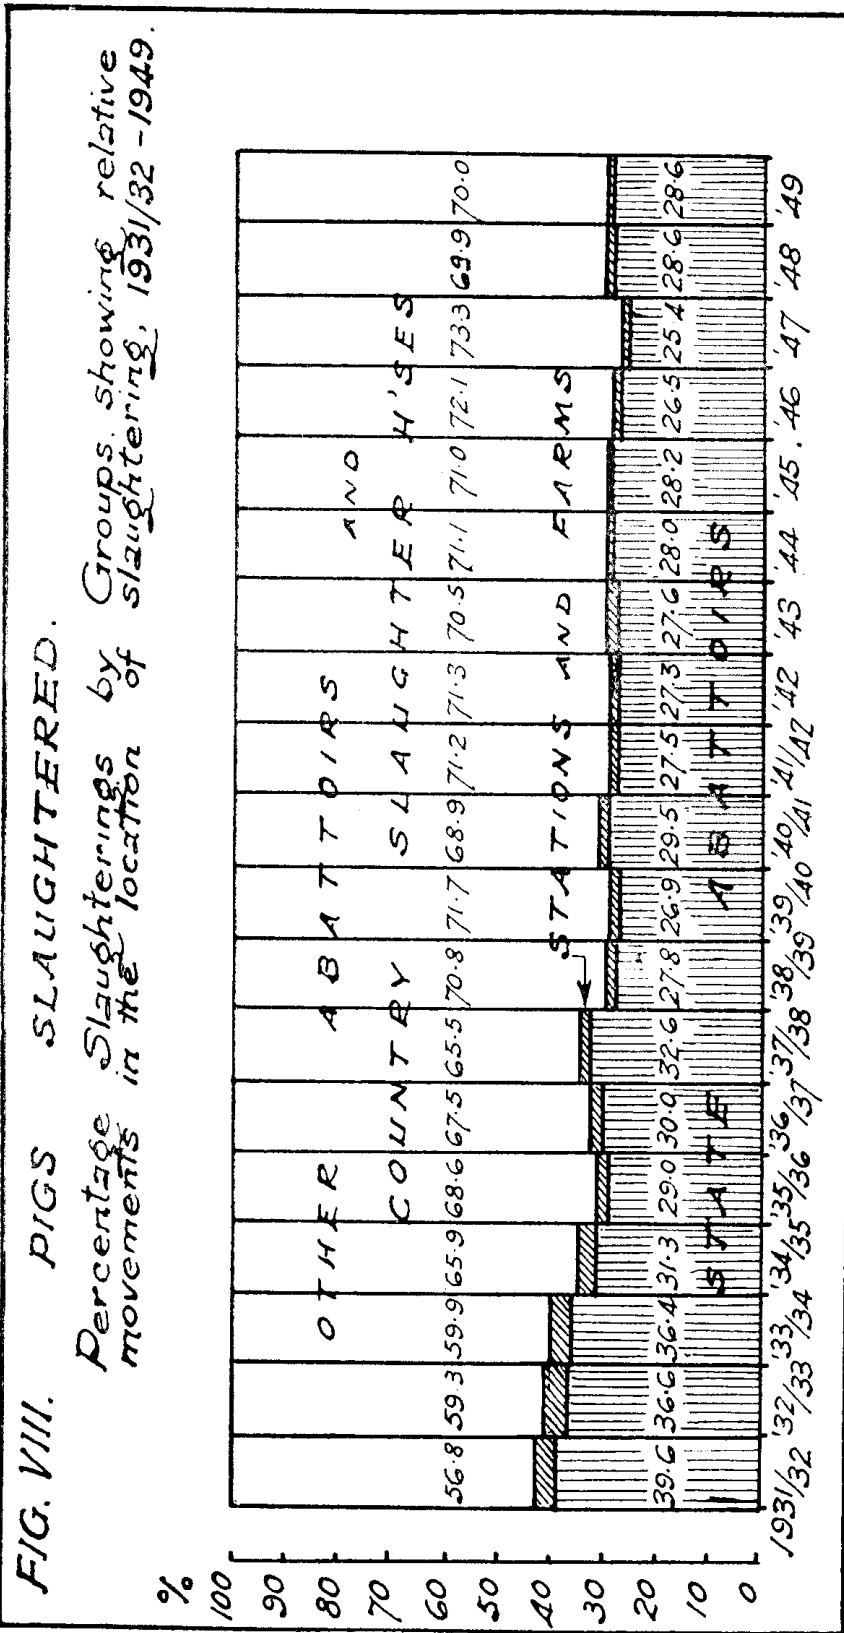 FIG. VIII. PIGS SLAUGHTERED.
Percentage Slaughterings by Groups. showing relative
movements in the location of slaughtering, 1931/32-1949.
%
100
90
80
70
60
50
40
30
20
10
0
OTHER ABATTOIRS AND
COUNTRY SLAUGHTER H'SES
56.8 59.3 59.9 65.9 68.6 67.5 65.5 70.8 71.7 68.9 71.2 71.3 70.5 71.1 71.0 72.1 73.3 69.9 70.0
STATIONS AND FARMS
39.6 36.6 36.4 31.3 29.0 30.0 32.6 27.8 26.9 29.5 27.5 27.3 27.6 28.0 28.2 26.5 25.4 28.6 28.6
STATE ABATTOIRS
1931/32 '32/33 '33/34 '34/35 '35/36 '36/37 '37/38 '38/39 '39/40 '40/41 '41/42 '42 '43 '44 '45. '46 '47 '48 '49